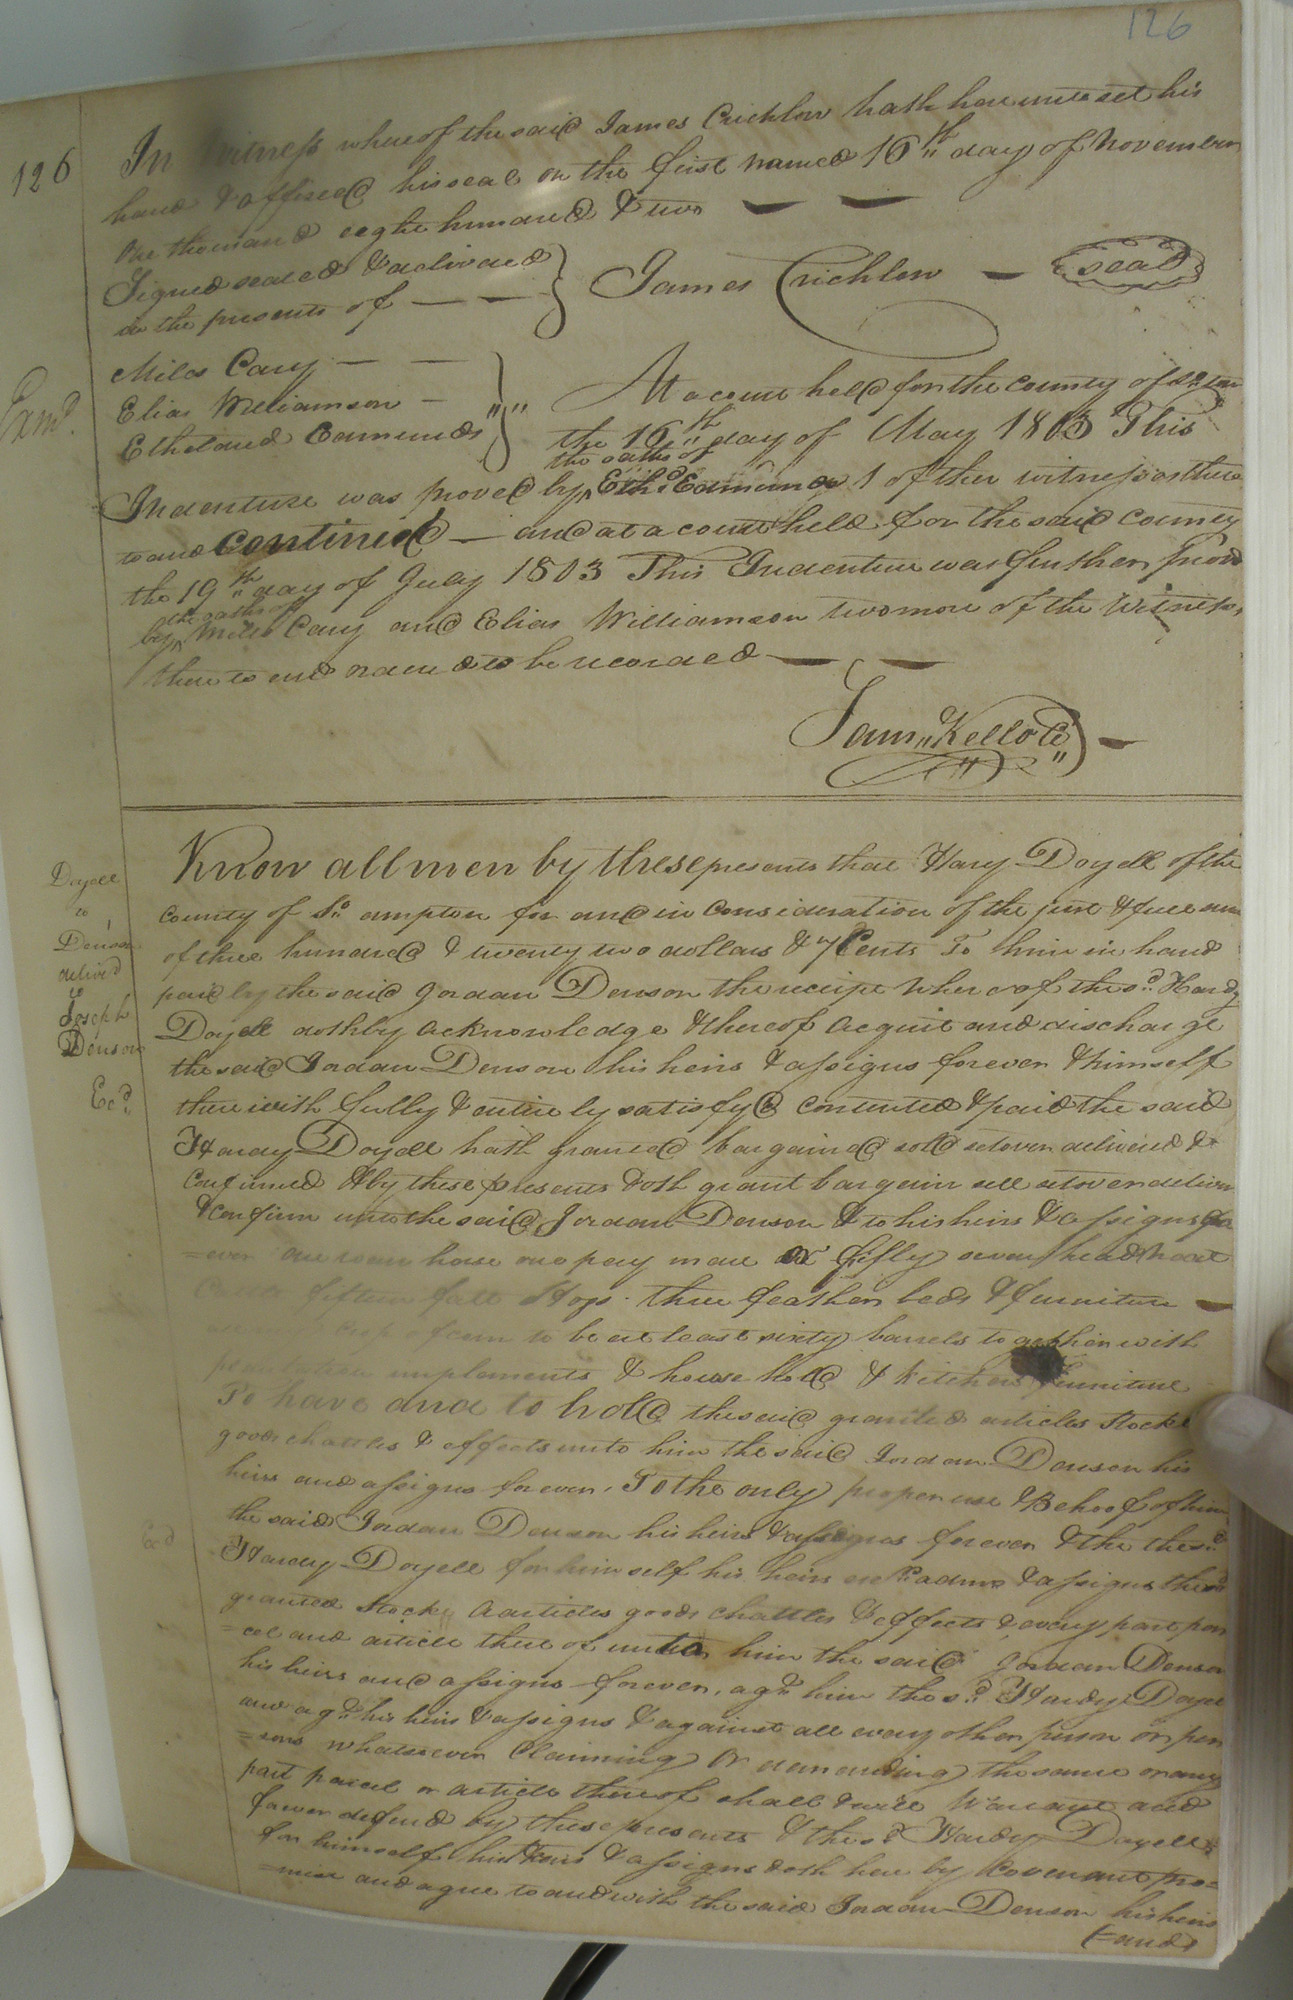 126
126
In witness whereof the said James Crichlow hath hereunto set his
hand & affixed his seal on the first named 16th day of November
One thousand eight hundred & two
Signed sealed & delivered
in the presents of
James Crichlow seal
Miles Cary
Elias Williamson
Etheland Edmunds
Exmd.
At a court held for the county of So. ton
the 16th day of May 1803 This
the oaths of
Indenture was proved by Ethd. Edmunds 1 of the witnesses there
to and Continued and at a court held for the said County
the 19th day of July 1803 This Indenture was further proved
the oaths of
by Miles Cary and Elias Williamson two more of the Witnesses
there to and ordered to be recorded
Sam Kello C
Doyell
to
Denson
deliverd
to
Joseph
Denson
Exd.
Know all men by these presents that Hardy Doyell of the
County of So. ampton for and in Consideration of the just & full sum
of three hundred & twenty two dollars & 7 Cents To him in hand
paid by the said Jordan Denson the receipt Whereof the sd. Hardy
Doyell doth by acknowledge & thereof acquit and discharge
the said Jordan Denson his heirs & assigns forever & himself
there with fully & entirely satisfyd contented & paid the said
Hardy Doyell hath granted bargained sold setover delivered &
Confirmed & by these presents doth grant bargain sell setover deliver
& confirm unto the said Jordan Denson & to his heirs & assigns for
=ever one roan horse one pay mare fifty seven head neat
Cattle fifteen fatt Hogs three feather beds & furniture
crop of corn to be at least sixty barrels together with
plantation implements & house hold & kitchen furniture
To have and to hold the said granted articles Stocke
goods chattles & effects unto him the said Jordan Denson his
heirs and assigns forever, To the only proper use & Behoof of him
the said Jordan Denson his heirs & assigns forever & the the sd.
Exd
Hardy Doyell for himself his heirs exrs. admrs & assigns the sd
granted Stocke articles goods chattles & effects & every part par
=cel and article there of unto him the said Jordan Denson
his heirs and assigns forever, agst. him the sd. Hardy Doyell
and agst. his heirs & assigns & against all every other person or per
=sons whatsoever Claiming Or demanding the same or any
part parcel or article thereof shall & will Warrant and
forever defend by these presents & the sd. Hardy Doyell
for himself his heirs & assigns doth here by Covenant pro=
=mise and agree to and with the said Jordan Denson his heirs
and